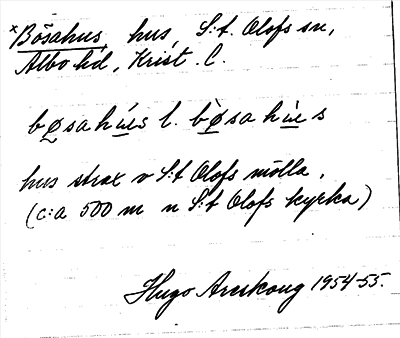 *Bösahus, hus, S:t. Olofs sn,
Albo hd, Krist. l.
bø̰sahú̲s l. bø̰̀sahù̲s
hus strax v S:t Olofs mölla.
(c:a 500 m n S:t Olofs kyrka)
Hugo Areskoug 1954-55.